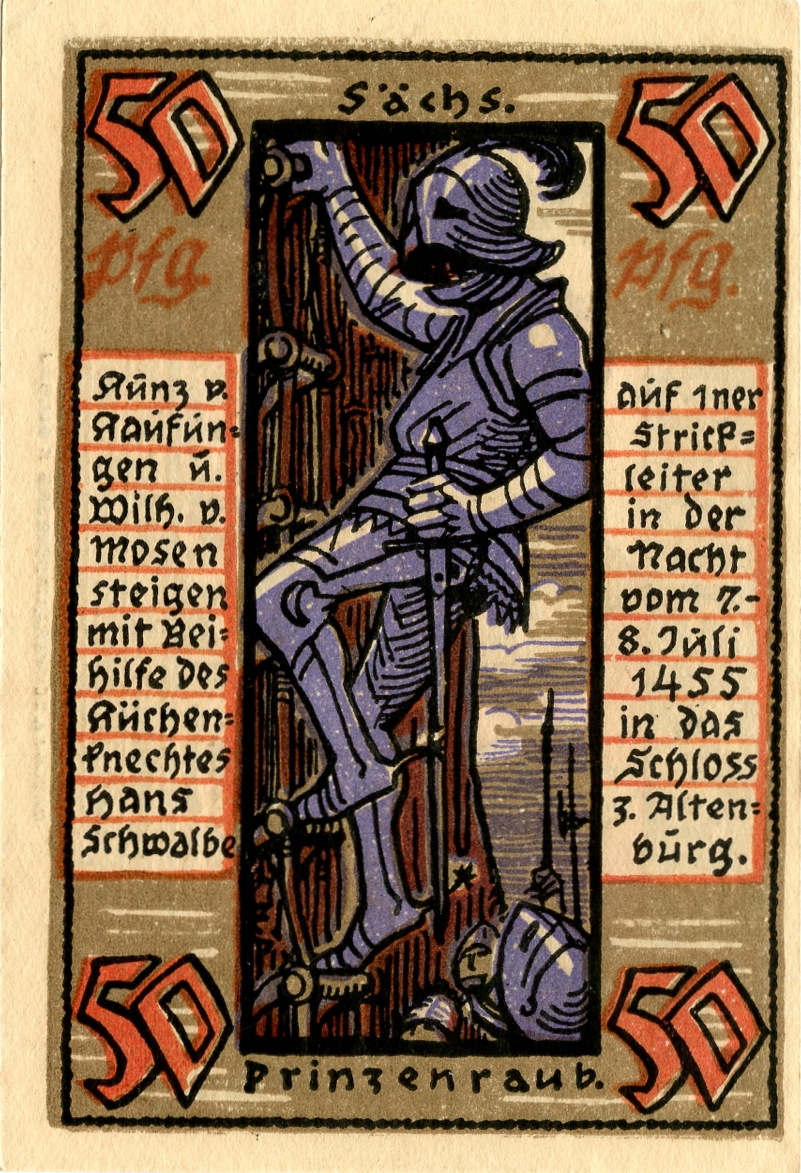 50 50
Sächs.
Pfg. Pfg.
Kunz v.
Kaufun=
gen u.
Wilh. v.
Mosen
steigen
mit Bei=
hilfe des
Küchen=
knechtes
Hans
Schwalbe
auf 1ner
Strick=
leiter
in der
Nacht
vom 7.-
8. Juli
1455
in das
Schloss
z. Alten=
burg.
50 50
Prinzenraub.